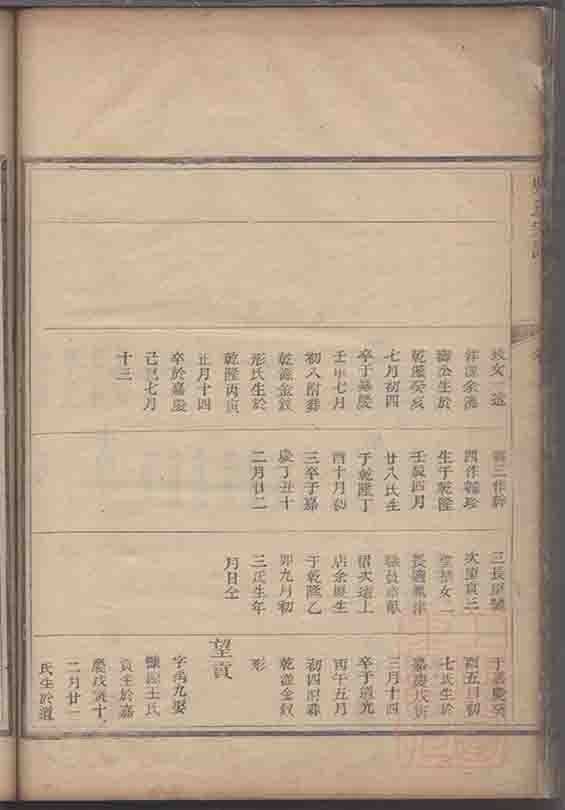 氏宗譜
女一適
公生於
乾隆癸亥
七月初四
卒于嘉慶
壬申七月
初八附葬
乾造金釵
形氏生於
乾隆丙寅
正月十四
卒於嘉慶
己巳七月
十三
生于乾隆
壬辰四月
廿八氏生
于乾隆丁
酉十月初
三卒于嘉
慶丁丑十
二月廿二
三長
次望貢三
女一
長適
次適上
店余氏生
于乾隆乙
卯九月初
三氏生年
月日仝
于嘉慶癸
酉五月初
七氏生於
嘉慶戊寅
三月十四
卒于道光
丙午五月
初四附葬
乾造金釵
形
望貢
字 九娶
王氏
貢生於嘉
慶戊寅十
二月廿一
氏生於道